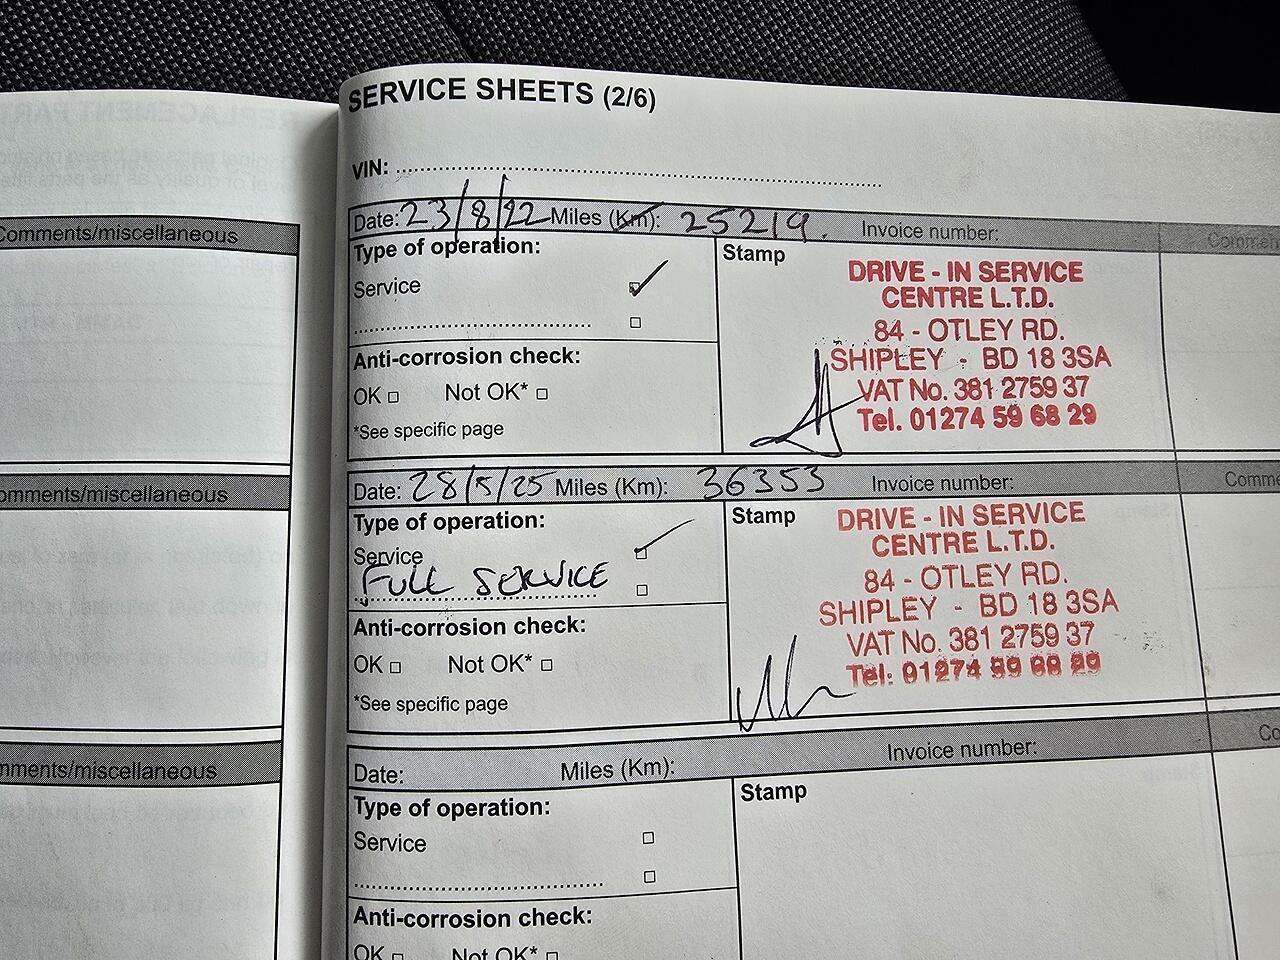 SERVICE SHEETS (2/6)
VIN:
Comments/miscellaneous
Date: 23/8/22 Miles (Km): 25219. Invoice number:
Type of operation:
Service
Anti-corrosion check:
OK Not OK*
*See specific page
Stamp
DRIVE - IN SERVICE
CENTRE L.T.D.
84 - OTLEY RD.
SHIPLEY - BD 18 3SA
VAT No. 381 2759 37
Tel. 01274 59 68 29
omments/miscellaneous
Date: 28/5/25 Miles (Km): 36353 Invoice number: Comme
Type of operation:
Service
FULL SERVICE
Anti-corrosion check:
OK Not OK*
*See specific page
Stamp
DRIVE - IN SERVICE
CENTRE L.T.D.
84 - OTLEY RD.
SHIPLEY - BD 18 3SA
VAT No. 381 2759 37
Tel: 01274 59 68 29
mments/miscellaneous
Date: Miles (Km): Invoice number: Co
Type of operation:
Service
Anti-corrosion check:
OK Not OK*
Stamp